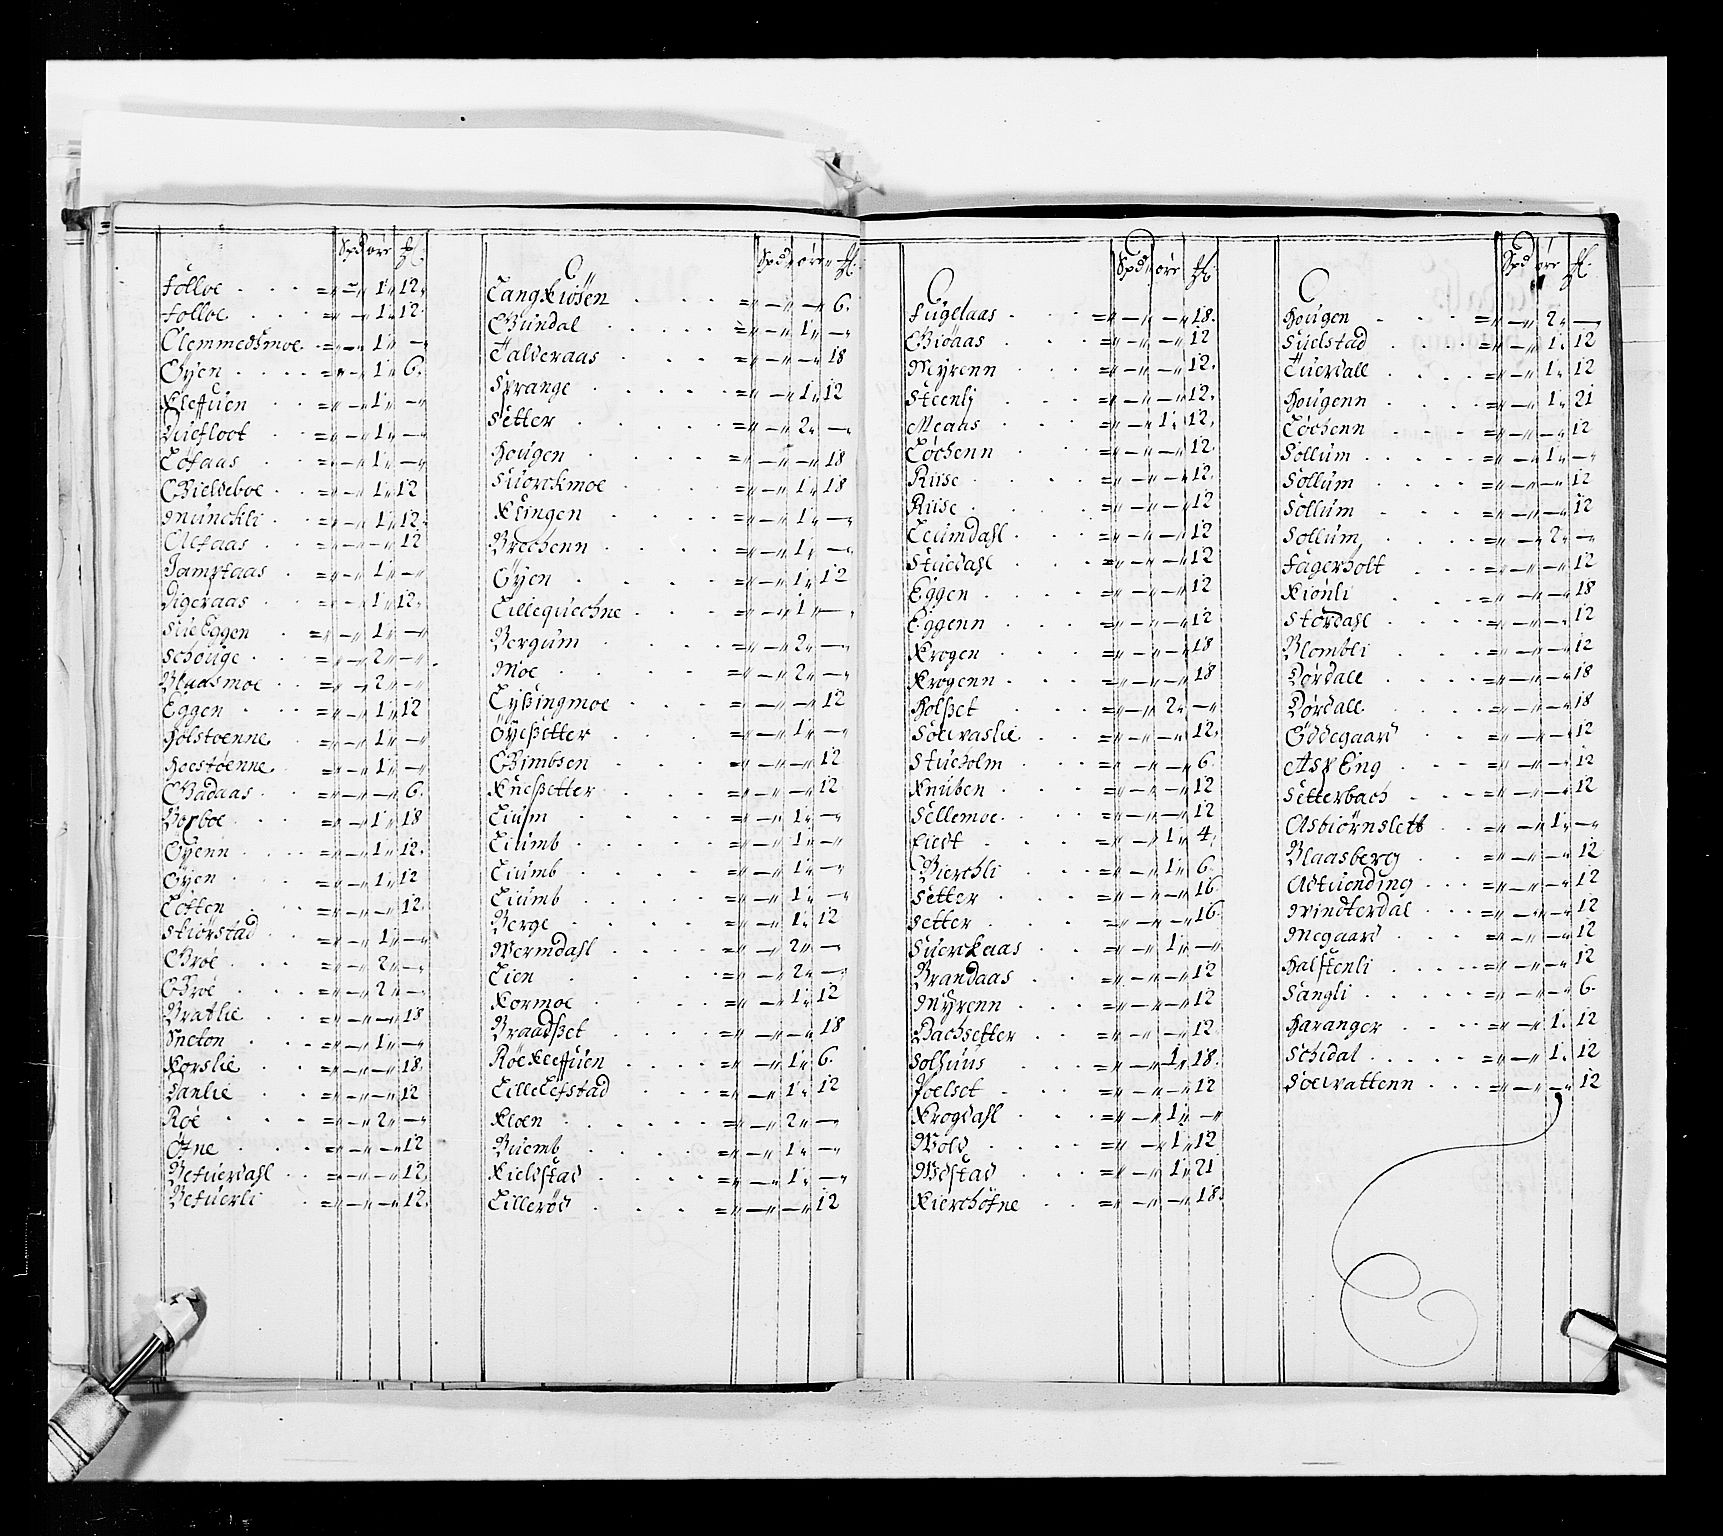 Spd öre
Folloe = „ — „ 1 „ 12
Folloe = „ — „ 1 „ 12
Clemmedsmoe = „ — „ 1 „ —
Öyen = „ — „ 1 „ 6
Kleffuen = „ — „ 1 „ —
= „ — „ 1 „ —
Löfaas = „ — „ 1 „ —
Gieldeboe = „ — „ 1 „ 12
Munckli = „ — „ 1 „ 12
Alfaas = „ — „ — „ 12
Jampfaas = „ — „ 1 „ —
Digeraas = „ — „ 1 „ 12
StueEggen = „ — „ 1 „ —
Schouge = „ — „ 2 „ —
Bladsmoe = „ — „ 2 „ —
Eggen = „ — „ 1 „ 12
Holstoenne = „ — „ 1 „ —
Hoestoenne = „ — „ 1 „ —
Gadaas = „ — „ — „ 6
Borboe = „ — „ 1 „ 18
Öyenn = „ — „ 1 „ 12
Öyen = „ — „ 1 „ 12
Loften = „ — „ — „ 12
Stiörstad = „ — „ 1 „ —
Groe = „ — „ 2 „ —
Groe = „ — „ 2 „ —
Bratlie = „ — „ — „ 18
Snefon = „ — „ 1 „ —
Korslie = „ — „ — „ 18
Danlie = „ — „ — „ 12
Roe = „ — „ 2 „ —
Öfne = „ — „ — „ 12
Befuerdahl = „ — „ — „ 12
Befuerli = „ — „ — „ 12
Spd öre
Langkiösen = „ — „ — „ 6
Gundal = „ — „ 1 „ —
Talderaas = „ — „ — „ 18
Krange = „ — „ 1 „ 12
Setter = „ — „ 2 „ —
Hougen = „ — „ — „ 18
Suorckmoe = „ — „ 1 „ 18
Klingen = „ — „ 1 „ —
Brechenn = „ — „ 1 „ —
Öyen = „ — „ 1 „ 12
Lillequechne = „ — „ 1 „ —
Bergum = „ — „ 2 „ —
Moe = „ — „ 2 „ —
Lysingmoe = „ — „ — „ 12
Öyesetter = „ — „ 1 „ —
Grimbsen = „ — „ — „ 12
Knesetter = „ — „ — „ 12
Lium = „ — „ 1 „ —
Liumb = „ — „ 1 „ —
Liumb = „ — „ 1 „ —
Liumb = „ — „ 1 „ —
Berge = „ — „ 1 „ 12
Wermdahl = „ — „ 2 „ —
Lien = „ — „ 2 „ —
Kormoe = „ — „ 1 „ 12
Braadset = „ — „ — „ 18
RoeKleffuen = „ — „ 1 „ 6
LilleLefstad = „ — „ 1 „ 12
Kloen = „ — „ 2 „ —
Buemb = „ — „ 1 „ —
Kieldstad = „ — „ 1 „ —
Lillerød = „ — „ — „ 12
Spd öre
Fuglaas = „ — „ — „ 18
Gioaas = „ — „ — „ 12
Myrenn = „ — „ — „ 12
Steenlj = „ — „ — „ 12
Meaas = „ — „ 1 „ 12
Löchenn = „ — „ — „ 12
Riise = „ — „ — „ 12
Riise = „ — „ — „ 12
Leumdahl = „ — „ — „ 12
Stuedahl = „ — „ — „ 12
Eggen = „ — „ — „ 12
Eggenn = „ — „ — „ 12
Krogen = „ — „ — „ 18
Krogenn = „ — „ — „ 18
Holset = „ — „ 2 „ —
Soervaslie = „ — „ — „ 12
Stueholm = „ — „ — „ 6
Knuben = „ — „ — „ 12
Sellemoe = „ — „ — „ 12
Fiedt = „ — „ 1 „ 4
Bierchli = „ — „ 1 „ 6
Setter = „ — „ — „ 16
Setter = „ — „ — „ 16
Suerkaas = „ — „ 1 „ —
Brandaas = „ — „ — „ 12
Myrenn = „ — „ — „ 12
Bachsetter = „ — „ — „ 12
Solhuus = „ — „ 1 „ 18
Poelset = „ — „ — „ 12
Krogdahl = „ — „ 1 „ —
Wold = „ — „ 1 „ 12
Wdstad = „ — „ 1 „ 21
Kierchöfne = „ — „ — „ 18
Spd öre
Hougen = „ — „ 2 „ —
Suelstad = „ — „ 1 „ 12
Tuerdall = „ — „ 1 „ 12
Hougenn = „ — „ 1 „ 21
Löchenn = „ — „ — „ 12
Sollum = „ — „ 1 „ —
Sollum = „ — „ — „ 12
Sollum = „ — „ — „ 12
Sollum = „ — „ 2 „ —
Fagerholt = „ — „ — „ 12
Kiönli = „ — „ — „ 18
Stordahl = „ — „ — „ 12
Blombli = „ — „ — „ 12
Dørdall = „ — „ — „ 18
Dørdall = „ — „ — „ 18
Öddegaard = „ — „ — „ 12
AskEng = „ — „ — „ 12
Setterbach = „ — „ — „ 12
Asbiörnslett = „ — „ 1 „ —
Blaasberg = „ — „ — „ 12
Adtuending = „ — „ — „ 12
Windterdal = „ — „ — „ 12
Megaard = „ — „ — „ 12
Halstenli = „ — „ — „ 12
Sangli = „ — „ — „ 6
Haranger = „ — „ 1 „ 12
Schdal = „ — „ 1 „ 12
Soelvattenn = „ — „ — „ 12